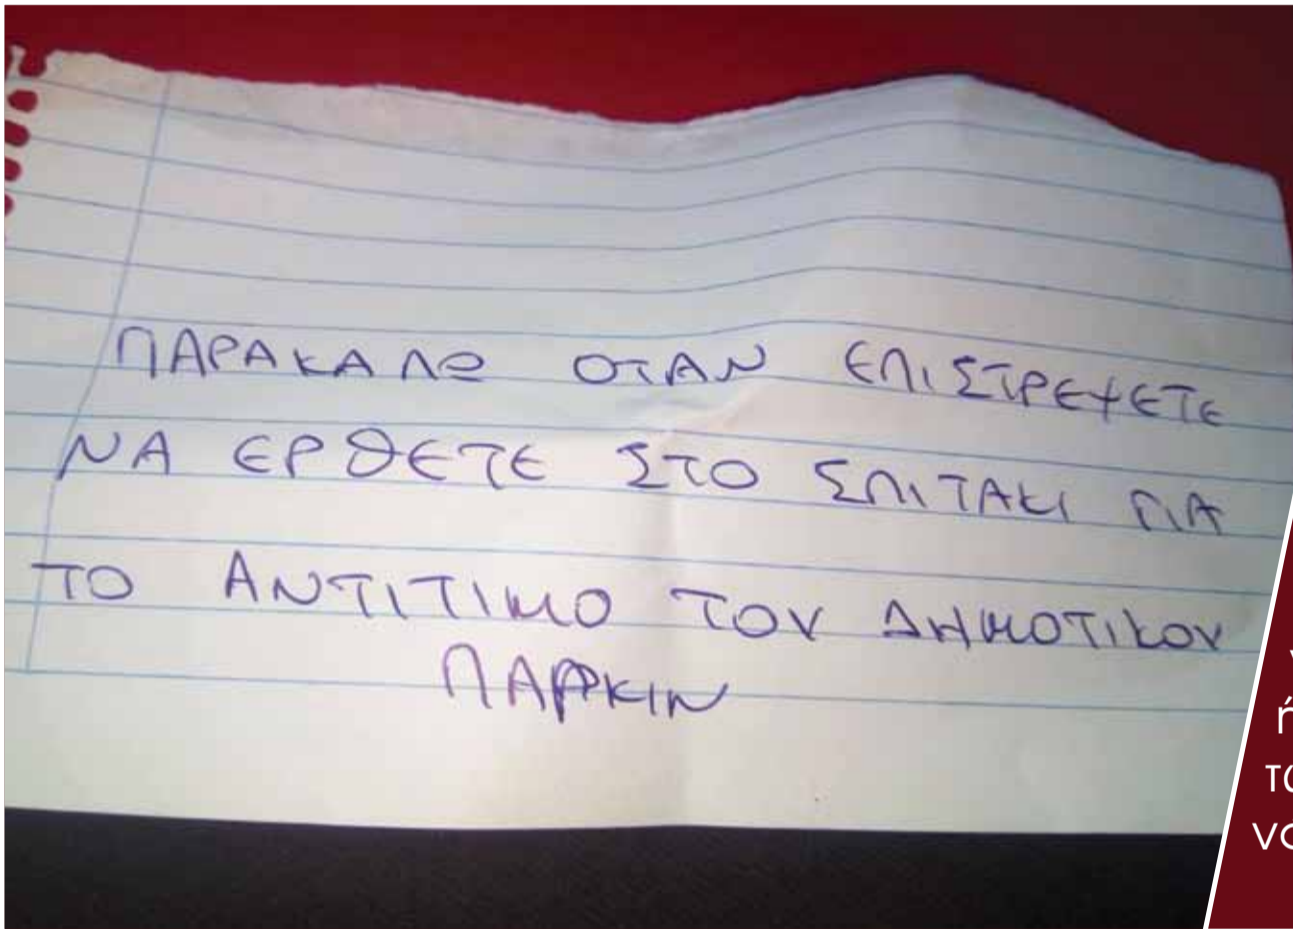 ΠΑΡΑΚΑΛΩ ΟΤΑΝ ΕΠΙΣΤΡΕΨΕΤΕ
ΝΑ ΕΡΘΕΤΕ ΣΤΟ ΣΠΙΤΑΚΙ ΓΙΑ
ΤΟ ΑΝΤΙΤΙΜΟ ΤΟΥ ΔΗΜΟΤΙΚΟΥ
ΠΑΡΚΙΝ